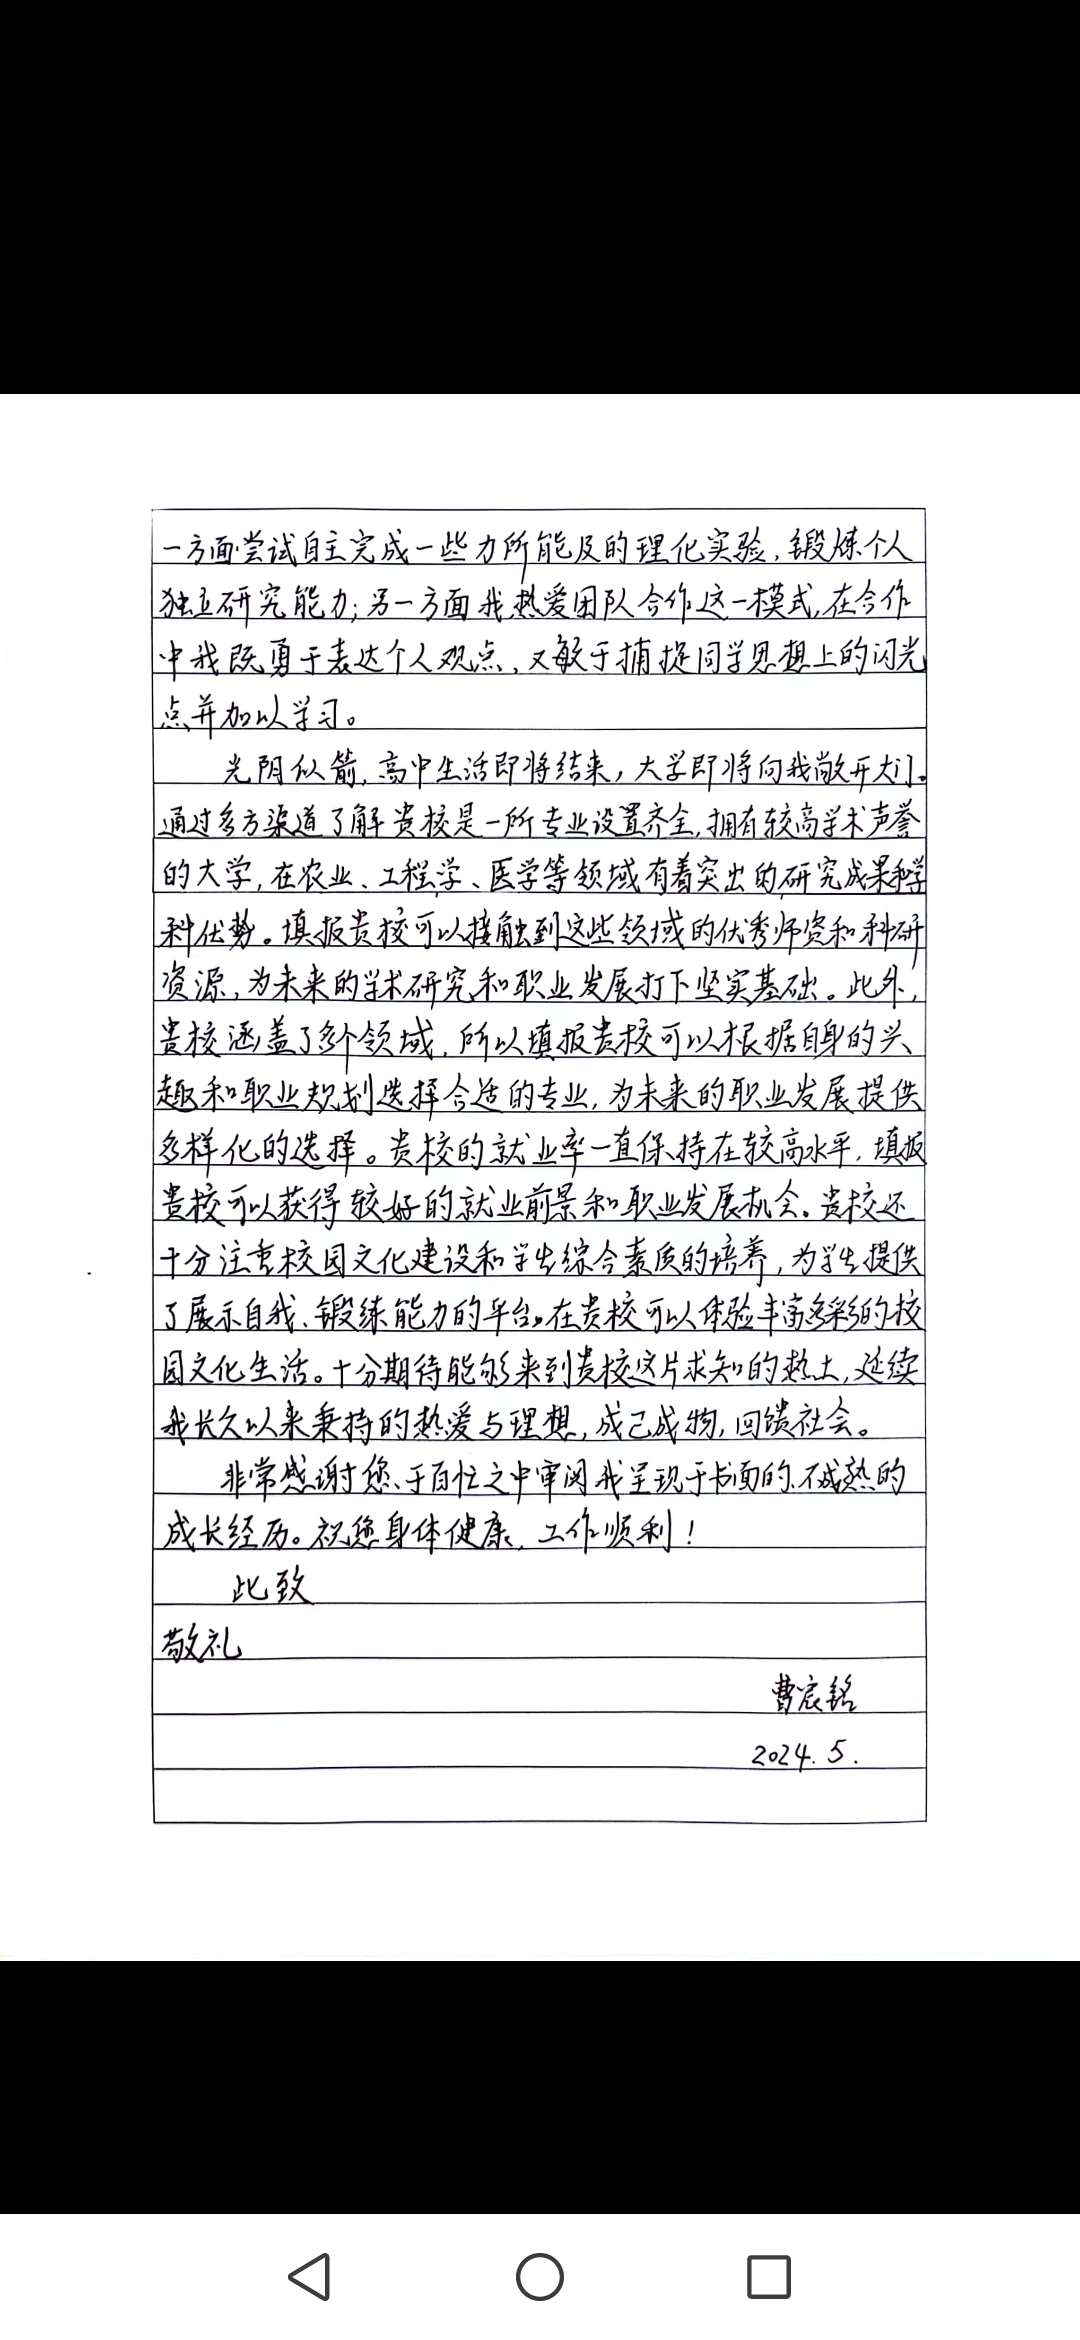 一方面尝试自主完成一些力所能及的理化实验,锻炼个人
独立研究能力;另一方面我热爱团队合作这一模式,在合作
中我既勇于表达个人观点,又敏于捕捉同学思想上的闪光
点并加以学习。
光阴似箭,高中生活即将结束,大学即将向我敞开大门。
通过多方渠道了解贵校是一所专业设置齐全,拥有较高学术声誉
的大学,在农业、工程学、医学等领域有着突出的研究成果和学
科优势。填报贵校可以接触到这些领域的优秀师资和科研
资源,为未来的学术研究和职业发展打下坚实基础。此外,
贵校涵盖了多个领域,所以填报贵校可以根据自身的兴
趣和职业规划选择合适的专业,为未来的职业发展提供
多样化的选择。贵校的就业率一直保持在较高水平,填报
贵校可以获得较好的就业前景和职业发展机会。贵校还
十分注重校园文化建设和学生综合素质的培养,为学生提供
了展示自我、锻练能力的平台。在贵校可以体验丰富多彩的校
园文化生活。十分期待能够来到贵校这片求知的热土,延续
我长久以来秉持的热爱与理想,成己成物,回馈社会。
非常感谢您、于百忙之中审阅我呈现于书面的、不成熟的
成长经历。祝您身体健康,工作顺利!
此致
敬礼
曹宸铭
2024.5.